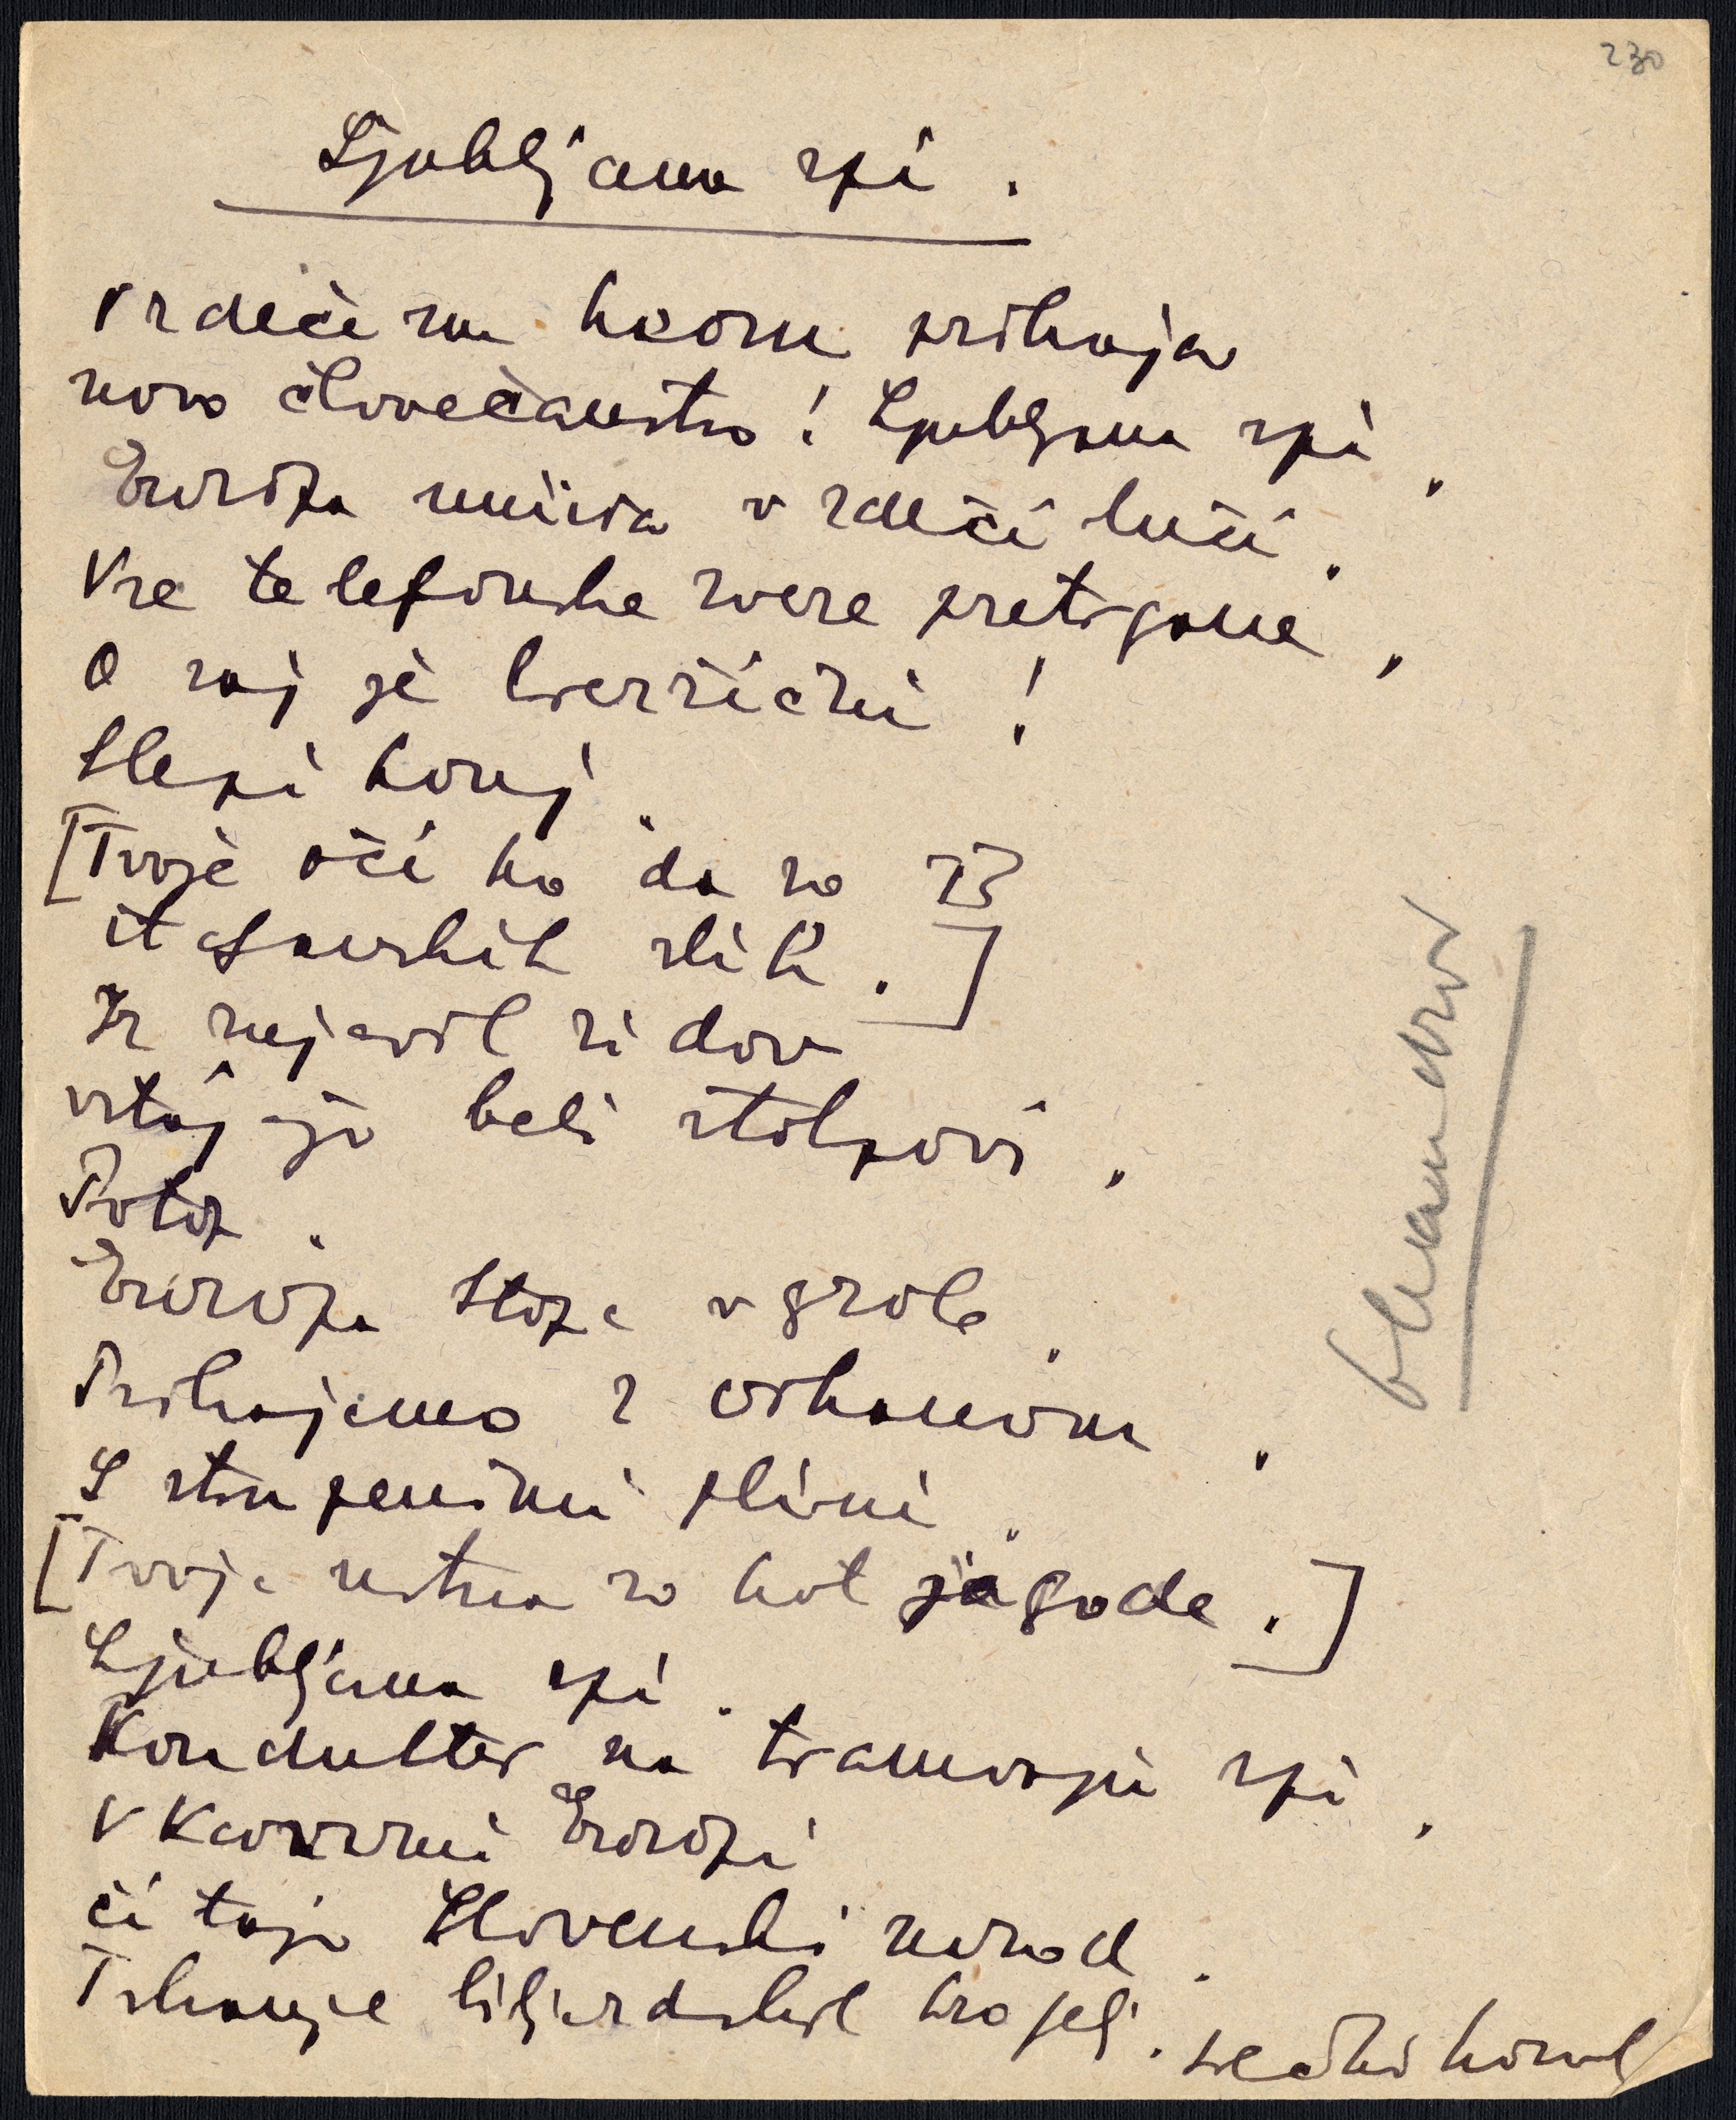 230
Ljubljana spi.
V rdečem kaosu prihaja
novo človečanstvo! Ljubljana spi.
Evropa umira v rdeči luči.
Vse telefonske zveze pretrgane.
O saj je brezžični!
Slepi konj.
[Tvoje oči ko da so iz
italijanskih slik.]
Iz rjavih zidov
vstajajo beli stolpovi.
Potop.
Evropa stopa v grob.
Prihajamo z orkanom.
S strupenimi plini.
[Tvoje ustna so kot jagode.]
Ljubljana spi.
Kondukter na tramvaju spi.
V Kavarni Evropi
čitajo Slovenski narod.
Trkanje biljardskih krogelj.
Srečko Kosovel